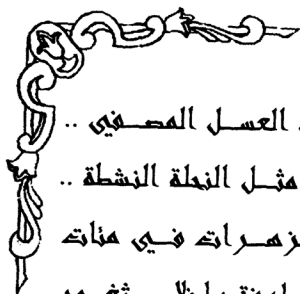 العسل المصفى ..
مثل النحلة النشطة ..
زهرات في مئات